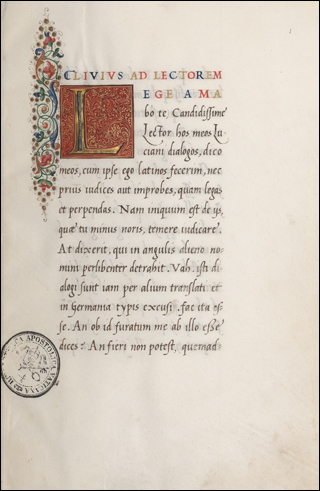 CLIVIVS AD LECTOREM
LEGE AMA
bo te Candidissime
Lector hos meos Lu
ciani dialogos, dico
meos, cum ipse ego latinos fecerim, nec
prius iudices aut improbes, quam legas
et perpendas. Nam iniquum est de ijs,
quæ tu minus noris, temere iudicare.
At dixerit, qui in angulis alieno no-
mini perlibenter detrahit. Vah. isti di-
alogi sunt iam per alium translati et
in Germania typis excusi. fac ita es-
se. An ob id furatum me ab illo esse
dices? An fieri non potest, quemad-
APOSTOLICA VATICANA
1